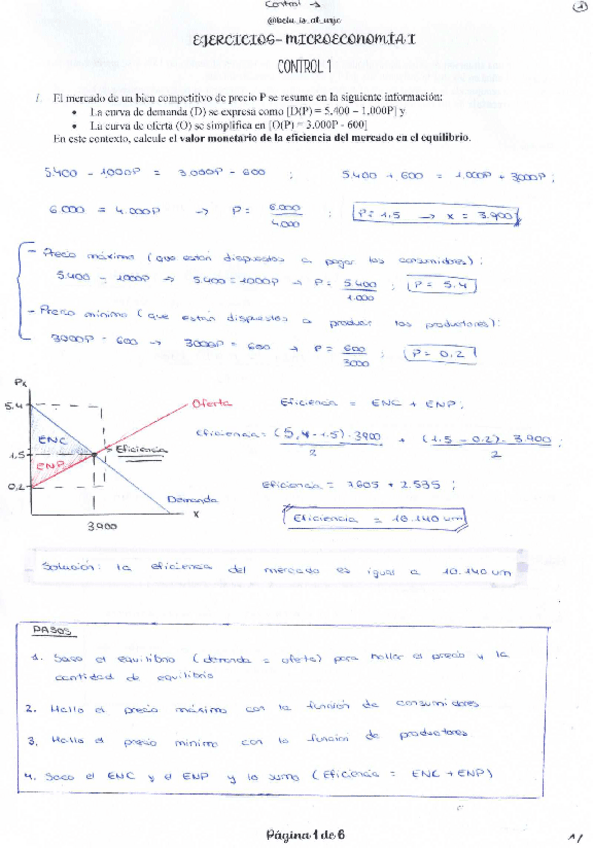 Control →
①
@belu_is_at_urjc
EJERCICIOS - MICROECONOMÍA I
CONTROL 1
1. El mercado de un bien competitivo de precio P se resume en la siguiente información:
• La curva de demanda (D) se expresa como [D(P) = 5.400 – 1.000P] y
• La curva de oferta (O) se simplifica en [O(P) = 3.000P - 600]
En este contexto, calcule el valor monetario de la eficiencia del mercado en el equilibrio.
5.400 - 1.000P = 3.000P - 600 ; 5.400 + 600 = 1.000P + 3000P ;
6.000 = 4.000P → P = 6.000 / 4.000 ; P = 1,5 → x = 3.900
- Precio máximo (que están dispuestos a pagar los consumidores) :
5.400 - 1000P → 5.400 = 1000P → P = 5.400 / 1.000 ; P = 5,4
- Precio mínimo (que están dispuestos a producir los productores) :
3000P - 600 → 3000P = 600 → P = 600 / 3000 ; P = 0,2
Px
5,4
Oferta
ENC
Eficiencia
1,5
ENP
0,2
Demanda
X
3.900
Eficiencia = ENC + ENP ;
Eficiencia = (5,4 - 1,5) · 3900 / 2 + (1,5 - 0,2) · 3.900 / 2 ;
Eficiencia = 7.605 + 2.535 ;
Eficiencia = 10.140 um
Solución: la eficiencia del mercado es igual a 10.140 um
PASOS
1. Saco el equilibrio (demanda = oferta) para hallar el precio y la
cantidad de equilibrio
2. Hallo el precio máximo con la función de consumidores
3. Hallo el precio mínimo con la función de productores
4. Saco el ENC y el ENP y lo sumo (Eficiencia = ENC + ENP)
Página 1 de 6